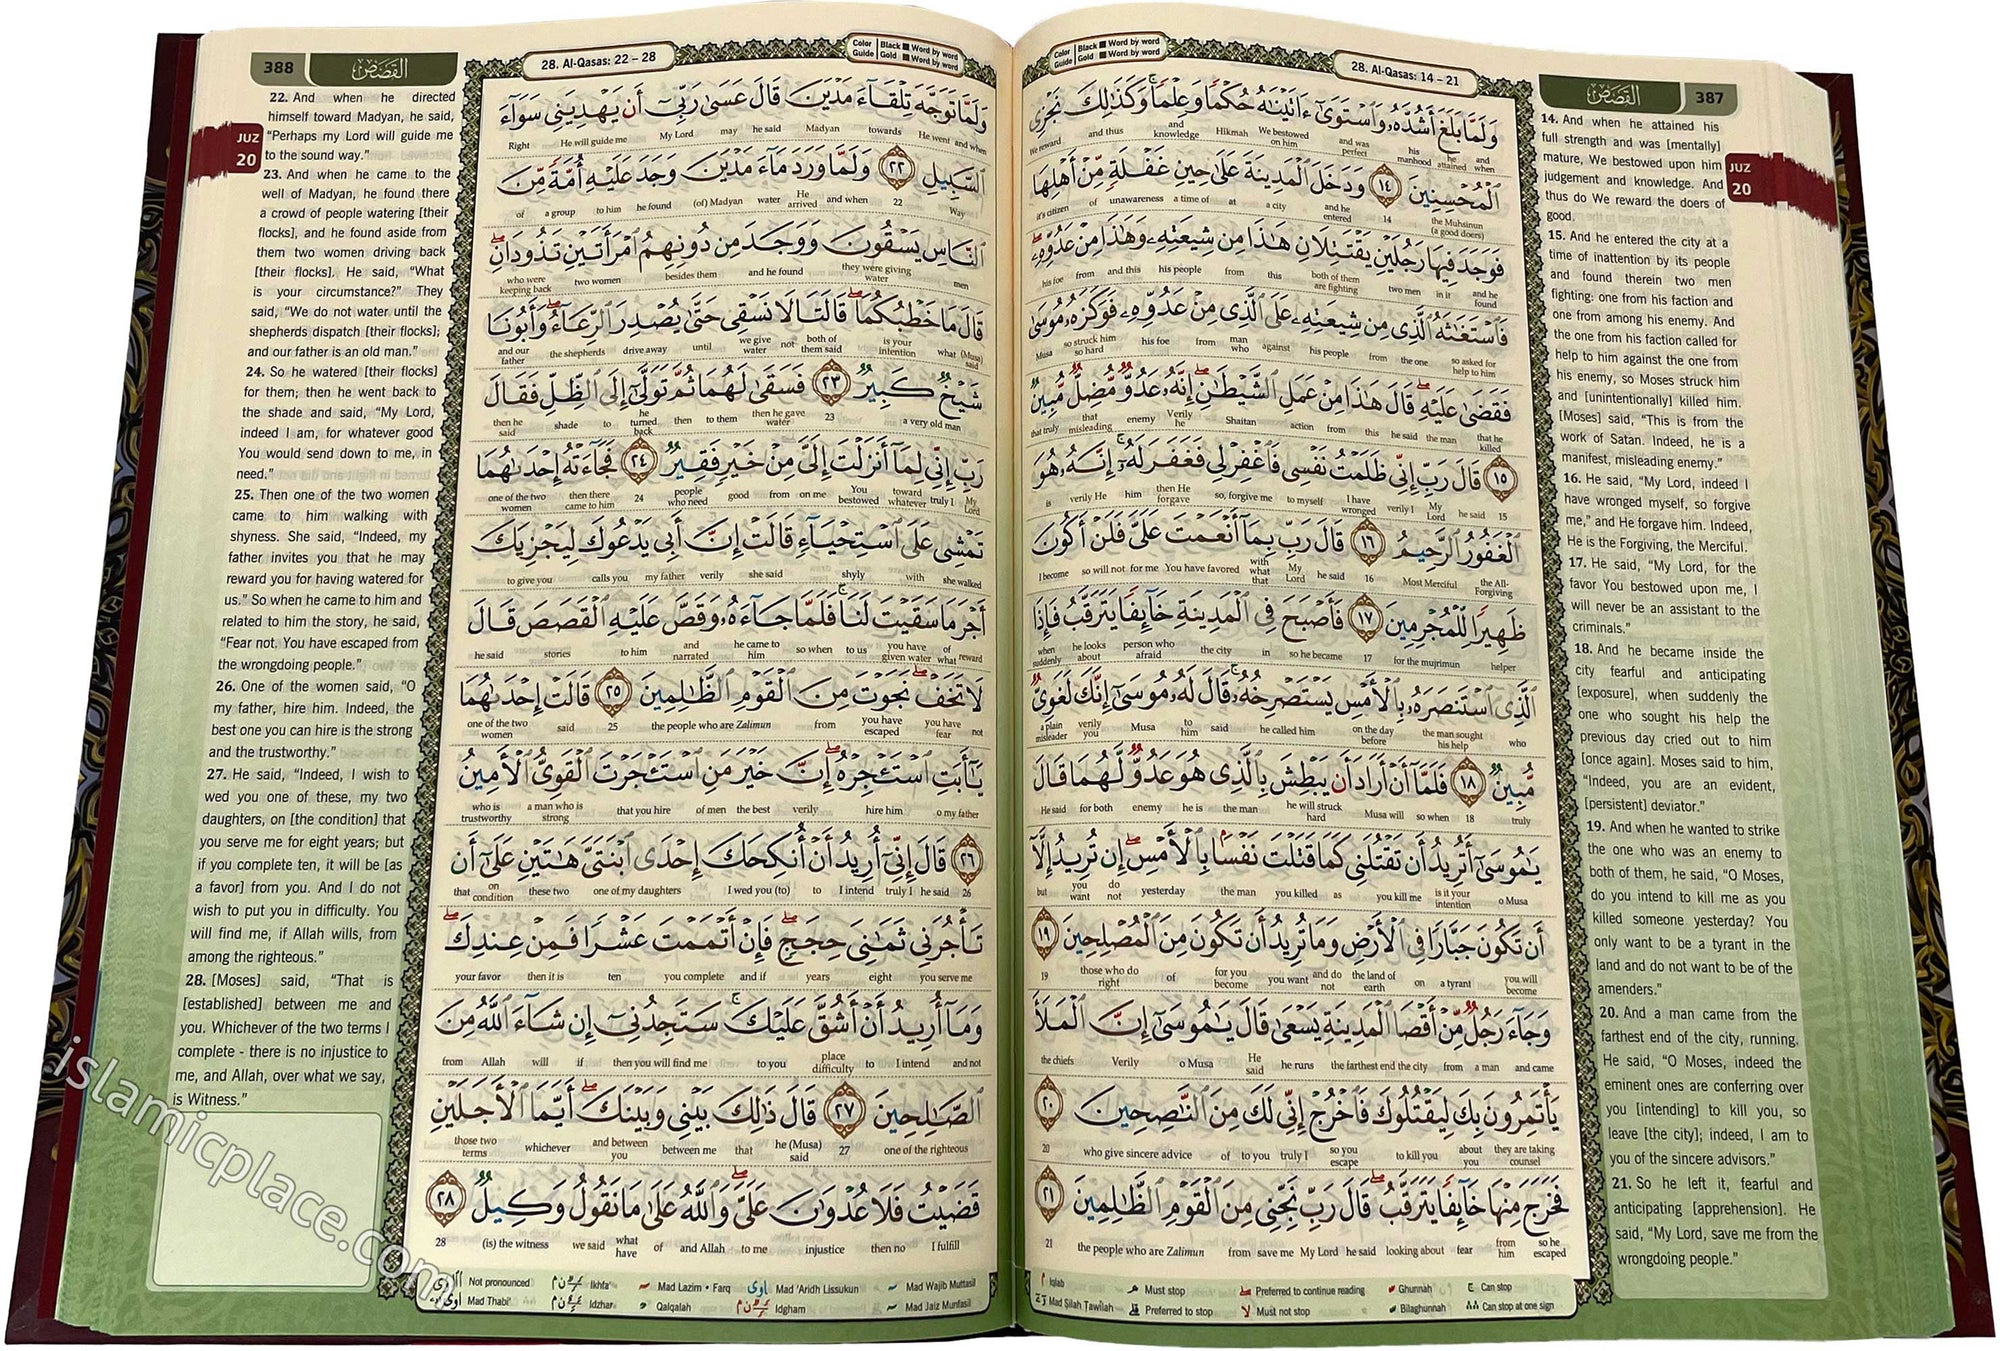 28. Al-Qasas: 14 – 21
Color Guide
Black Word by word
Gold Word by word
القصص
387
JUZ
20
وَلَمَّا بَلَغَ أَشُدَّهُۥ وَٱسْتَوَىٰٓ ءَاتَيْنَٰهُ حُكْمًا وَعِلْمًا ۚ وَكَذَٰلِكَ نَجْزِى
and when he attained his manhood and was perfect We bestowed on him Hikmah and knowledge and thus We reward
ٱلْمُحْسِنِينَ ١٤ وَدَخَلَ ٱلْمَدِينَةَ عَلَىٰ حِينِ غَفْلَةٍ مِّنْ أَهْلِهَا
the Muhsinun (a good doers) 14 and he entered a city at a time of unawareness of it's citizen
فَوَجَدَ فِيهَا رَجُلَيْنِ يَقْتَتِلَانِ هَٰذَا مِن شِيعَتِهِۦ وَهَٰذَا مِنْ عَدُوِّهِۦ ۖ
and he found in it two men both of them are fighting this from his people and this from his foe
فَٱسْتَغَٰثَهُ ٱلَّذِى مِن شِيعَتِهِۦ عَلَى ٱلَّذِى مِنْ عَدُوِّهِۦ فَوَكَزَهُۥ مُوسَىٰ
so asked for help to him the one from his people against man who from his foe so struck him so hard Musa
فَقَضَىٰ عَلَيْهِ ۖ قَالَ هَٰذَا مِنْ عَمَلِ ٱلشَّيْطَٰنِ ۖ إِنَّهُۥ عَدُوٌّ مُّضِلٌّ مُّبِينٌ
that he killed the man he said this from action Shaitan Verily he enemy that misleading that truly
١٥ قَالَ رَبِّ إِنِّى ظَلَمْتُ نَفْسِى فَٱغْفِرْ لِى فَغَفَرَ لَهُۥٓ ۚ إِنَّهُۥ هُوَ
15 he said My Lord verily I I have wronged to myself so, forgive me then He forgave him verily He is
ٱلْغَفُورُ ٱلرَّحِيمُ ١٦ قَالَ رَبِّ بِمَآ أَنْعَمْتَ عَلَىَّ فَلَنْ أَكُونَ
the All-Forgiving Most Merciful 16 he said My Lord with what that You have favored for me so will not I become
ظَهِيرًا لِّلْمُجْرِمِينَ ١٧ فَأَصْبَحَ فِى ٱلْمَدِينَةِ خَآئِفًا يَتَرَقَّبُ فَإِذَا
helper for the mujrimun 17 so he became in the city person who afraid he looks about when suddenly
ٱلَّذِى ٱسْتَنصَرَهُۥ بِٱلْأَمْسِ يَسْتَصْرِخُهُۥ ۚ قَالَ لَهُۥ مُوسَىٰٓ إِنَّكَ لَغَوِىٌّ
who the man sought his help on the day before he called him said to him Musa verily you plain misleader
مُّبِينٌ ١٨ فَلَمَّآ أَنْ أَرَادَ أَن يَبْطِشَ بِٱلَّذِى هُوَ عَدُوٌّ لَّهُمَا قَالَ
truly 18 so when Musa will he will struck hard the man he is enemy for both He said
يَٰمُوسَىٰٓ أَتُرِيدُ أَن تَقْتُلَنِى كَمَا قَتَلْتَ نَفْسًۢا بِٱلْأَمْسِ ۖ إِن تُرِيدُ إِلَّآ
o Musa is it your intention you kill me as you killed the man yesterday do not you want but
أَن تَكُونَ جَبَّارًا فِى ٱلْأَرْضِ وَمَا تُرِيدُ أَن تَكُونَ مِنَ ٱلْمُصْلِحِينَ ١٩
you will become a tyrant on the land of earth and do not you want for you become of those who do right 19
وَجَآءَ رَجُلٌ مِّنْ أَقْصَا ٱلْمَدِينَةِ يَسْعَىٰ قَالَ يَٰمُوسَىٰٓ إِنَّ ٱلْمَلَأَ
and came a man from the farthest end the city he runs He said o Musa Verily the chiefs
يَأْتَمِرُونَ بِكَ لِيَقْتُلُوكَ فَٱخْرُجْ إِنِّى لَكَ مِنَ ٱلنَّٰصِحِينَ ٢٠
they are taking counsel about you to kill you so you escape truly I to you of who give sincere advice 20
فَخَرَجَ مِنْهَا خَآئِفًا يَتَرَقَّبُ ۖ قَالَ رَبِّ نَجِّنِى مِنَ ٱلْقَوْمِ ٱلظَّٰلِمِينَ ٢١
so he escaped from him fear looking about he said My Lord save me from the people who are Zalimun 21
14. And when he attained his
full strength and was [mentally]
mature, We bestowed upon him
judgement and knowledge. And
thus do We reward the doers of
good.
15. And he entered the city at a
time of inattention by its people
and found therein two men
fighting: one from his faction and
one from among his enemy. And
the one from his faction called for
help to him against the one from
his enemy, so Moses struck him
and [unintentionally] killed him.
[Moses] said, “This is from the
work of Satan. Indeed, he is a
manifest, misleading enemy.”
16. He said, “My Lord, indeed I
have wronged myself, so forgive
me,” and He forgave him. Indeed,
He is the Forgiving, the Merciful.
17. He said, “My Lord, for the
favor You bestowed upon me, I
will never be an assistant to the
criminals.”
18. And he became inside the
city fearful and anticipating
[exposure], when suddenly the
one who sought his help the
previous day cried out to him
[once again]. Moses said to him,
“Indeed, you are an evident,
[persistent] deviator.”
19. And when he wanted to strike
the one who was an enemy to
both of them, he said, “O Moses,
do you intend to kill me as you
killed someone yesterday? You
only want to be a tyrant in the
land and do not want to be of the
amenders.”
20. And a man came from the
farthest end of the city, running.
He said, “O Moses, indeed the
eminent ones are conferring over
you [intending] to kill you, so
leave [the city]; indeed, I am to
you of the sincere advisors.”
21. So he left it, fearful and
anticipating [apprehension]. He
said, “My Lord, save me from the
wrongdoing people.”
Iqlab
Must stop
Preferred to continue reading
Ghunnah
Can stop
Mad Silah Tawilah
Preferred to stop
Must not stop
Bilaghunnah
Can stop at one sign
388
القصص
28. Al-Qasas: 22 – 28
Color Guide
Black Word by word
Gold Word by word
JUZ
20
وَلَمَّا تَوَجَّهَ تِلْقَآءَ مَدْيَنَ قَالَ عَسَىٰ رَبِّىٓ أَن يَهْدِيَنِى سَوَآءَ
and when He went towards Madyan he said may My Lord He will guide me Right
ٱلسَّبِيلِ ٢٢ وَلَمَّا وَرَدَ مَآءَ مَدْيَنَ وَجَدَ عَلَيْهِ أُمَّةً مِّنَ
Way 22 and when He arrived water (of) Madyan he found to him a group of
ٱلنَّاسِ يَسْقُونَ وَوَجَدَ مِن دُونِهِمُ ٱمْرَأَتَيْنِ تَذُودَانِ ۖ
men they were giving water and he found besides them two women who were keeping back
قَالَ مَا خَطْبُكُمَا ۖ قَالَتَا لَا نَسْقِى حَتَّىٰ يُصْدِرَ ٱلرِّعَآءُ ۖ وَأَبُونَا
(Musa) said what is your intention both of them said not we give water until drive away the shepherds and our father
شَيْخٌ كَبِيرٌ ٢٣ فَسَقَىٰ لَهُمَا ثُمَّ تَوَلَّىٰٓ إِلَى ٱلظِّلِّ فَقَالَ
a very old man 23 then he gave water to them then he turned back to shade then he said
رَبِّ إِنِّى لِمَآ أَنزَلْتَ إِلَىَّ مِنْ خَيْرٍ فَقِيرٌ ٢٤ فَجَآءَتْهُ إِحْدَىٰهُمَا
My Lord truly I toward whatever You bestowed on me from good people who need 24 then there came to him one of the two women
تَمْشِى عَلَى ٱسْتِحْيَآءٍ قَالَتْ إِنَّ أَبِى يَدْعُوكَ لِيَجْزِيَكَ
she walked with shyly she said verily my father calls you to give you
أَجْرَ مَا سَقَيْتَ لَنَا ۚ فَلَمَّا جَآءَهُۥ وَقَصَّ عَلَيْهِ ٱلْقَصَصَ قَالَ
reward of what you have given water to us so when he came to him and narrated to him stories he said
لَا تَخَفْ ۖ نَجَوْتَ مِنَ ٱلْقَوْمِ ٱلظَّٰلِمِينَ ٢٥ قَالَتْ إِحْدَىٰهُمَا
not you have fear you have escaped from the people who are Zalimun 25 said one of the two women
يَٰٓأَبَتِ ٱسْتَـْٔجِرْهُ ۖ إِنَّ خَيْرَ مَنِ ٱسْتَـْٔجَرْتَ ٱلْقَوِىُّ ٱلْأَمِينُ
o my father hire him verily the best of men that you hire a man who is strong who is trustworthy
٢٦ قَالَ إِنِّىٓ أُرِيدُ أَنْ أُنكِحَكَ إِحْدَى ٱبْنَتَىَّ هَٰتَيْنِ عَلَىٰٓ أَن
26 he said truly I I intend to I wed you (to) one of my daughters these two on condition that
تَأْجُرَنِى ثَمَٰنِىَ حِجَجٍ ۖ فَإِنْ أَتْمَمْتَ عَشْرًا فَمِنْ عِندِكَ ۖ
you serve me eight years and if you complete ten then it is your favor
وَمَآ أُرِيدُ أَنْ أَشُقَّ عَلَيْكَ ۚ سَتَجِدُنِىٓ إِن شَآءَ ٱللَّهُ مِنَ
and not I intend to place difficulty to you then you will find me if will Allah from
ٱلصَّٰلِحِينَ ٢٧ قَالَ ذَٰلِكَ بَيْنِى وَبَيْنَكَ ۖ أَيَّمَا ٱلْأَجَلَيْنِ
one of the righteous 27 he (Musa) said that between me and between you whichever those two terms
قَضَيْتُ فَلَا عُدْوَٰنَ عَلَىَّ ۖ وَٱللَّهُ عَلَىٰ مَا نَقُولُ وَكِيلٌ ٢٨
I fulfill then no injustice to me and Allah of what have we said (is) the witness 28
22. And when he directed
himself toward Madyan, he said,
“Perhaps my Lord will guide me
to the sound way.”
23. And when he came to the
well of Madyan, he found there
a crowd of people watering [their
flocks], and he found aside from
them two women driving back
[their flocks]. He said, “What
is your circumstance?” They
said, “We do not water until the
shepherds dispatch [their flocks];
and our father is an old man.”
24. So he watered [their flocks]
for them; then he went back to
the shade and said, “My Lord,
indeed I am, for whatever good
You would send down to me, in
need.”
25. Then one of the two women
came to him walking with
shyness. She said, “Indeed, my
father invites you that he may
reward you for having watered for
us.” So when he came to him and
related to him the story, he said,
“Fear not. You have escaped from
the wrongdoing people.”
26. One of the women said, “O
my father, hire him. Indeed, the
best one you can hire is the strong
and the trustworthy.”
27. He said, “Indeed, I wish to
wed you one of these, my two
daughters, on [the condition] that
you serve me for eight years; but
if you complete ten, it will be [as
a favor] from you. And I do not
wish to put you in difficulty. You
will find me, if Allah wills, from
among the righteous.”
28. [Moses] said, “That is
[established] between me and
you. Whichever of the two terms I
complete - there is no injustice to
me, and Allah, over what we say,
is Witness.”
Not pronounced
Ikhfa'
Mad Lazim • Farq
Mad 'Aridh Lissukun
Mad Wajib Muttasil
Mad Thabi'
Idzhar
Qalqalah
Idgham
Mad Jaiz Munfasil
islamicplace.com